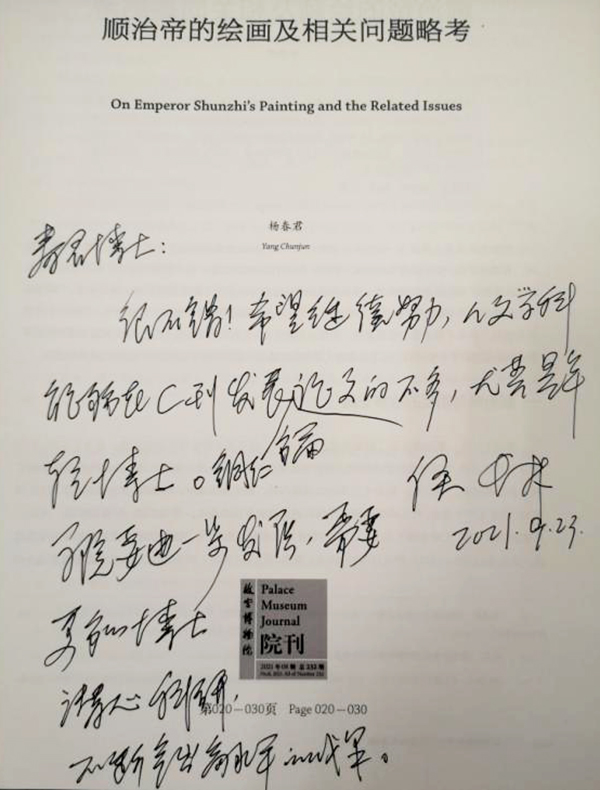 顺治帝的绘画及相关问题略考
On Emperor Shunzhi's Painting and the Related Issues
杨春君
Yang Chunjun
春君博士：
很不错！希望继续努力，人文学科
能够在C刊发表论文的不多，尤其是年
轻博士。铜仁学院要进一步发展，需要
2021.9.23.
更多的博士
潜心科研，
不断多出高水平的成果。
故宫博物院
Palace
Museum
Journal
院刊
2021年第08期 总第232期
第020—030页 Page 020—030